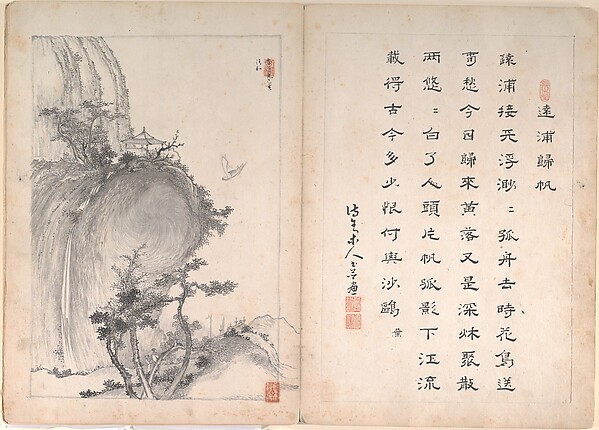 遠浦歸帆
遠浦接天浮渺〻孤舟去時花鳥送
愁今日歸來黃落又是深秋聚散
兩悠〻白了人頭片帆孤影下江流
載得古今多少恨付與沙鷗 葉